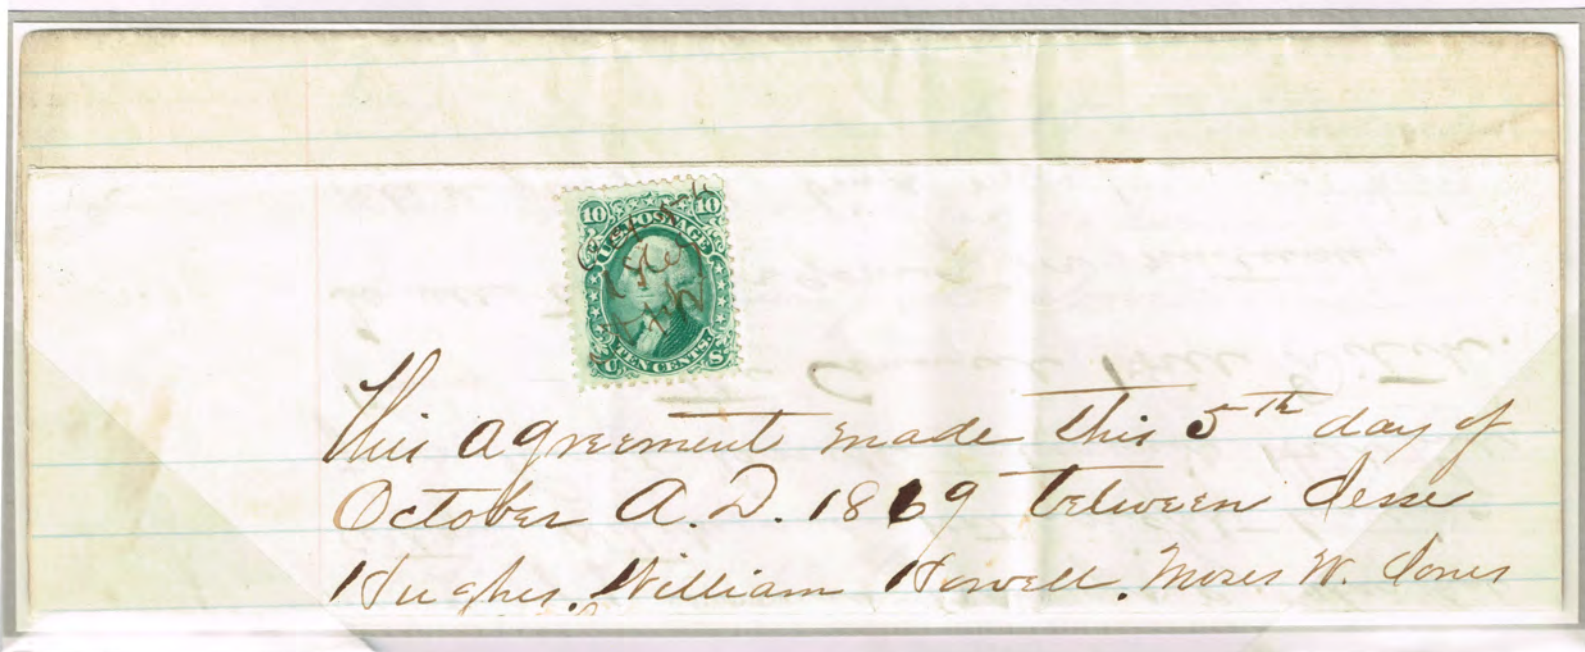 10 10
U.S. POSTAGE
TEN CENTS.
U S
Oct 5th
This agreement made this 5th day of
October A.D. 1869 between Jesse
Hughes, William Howell, Moses W. Jones